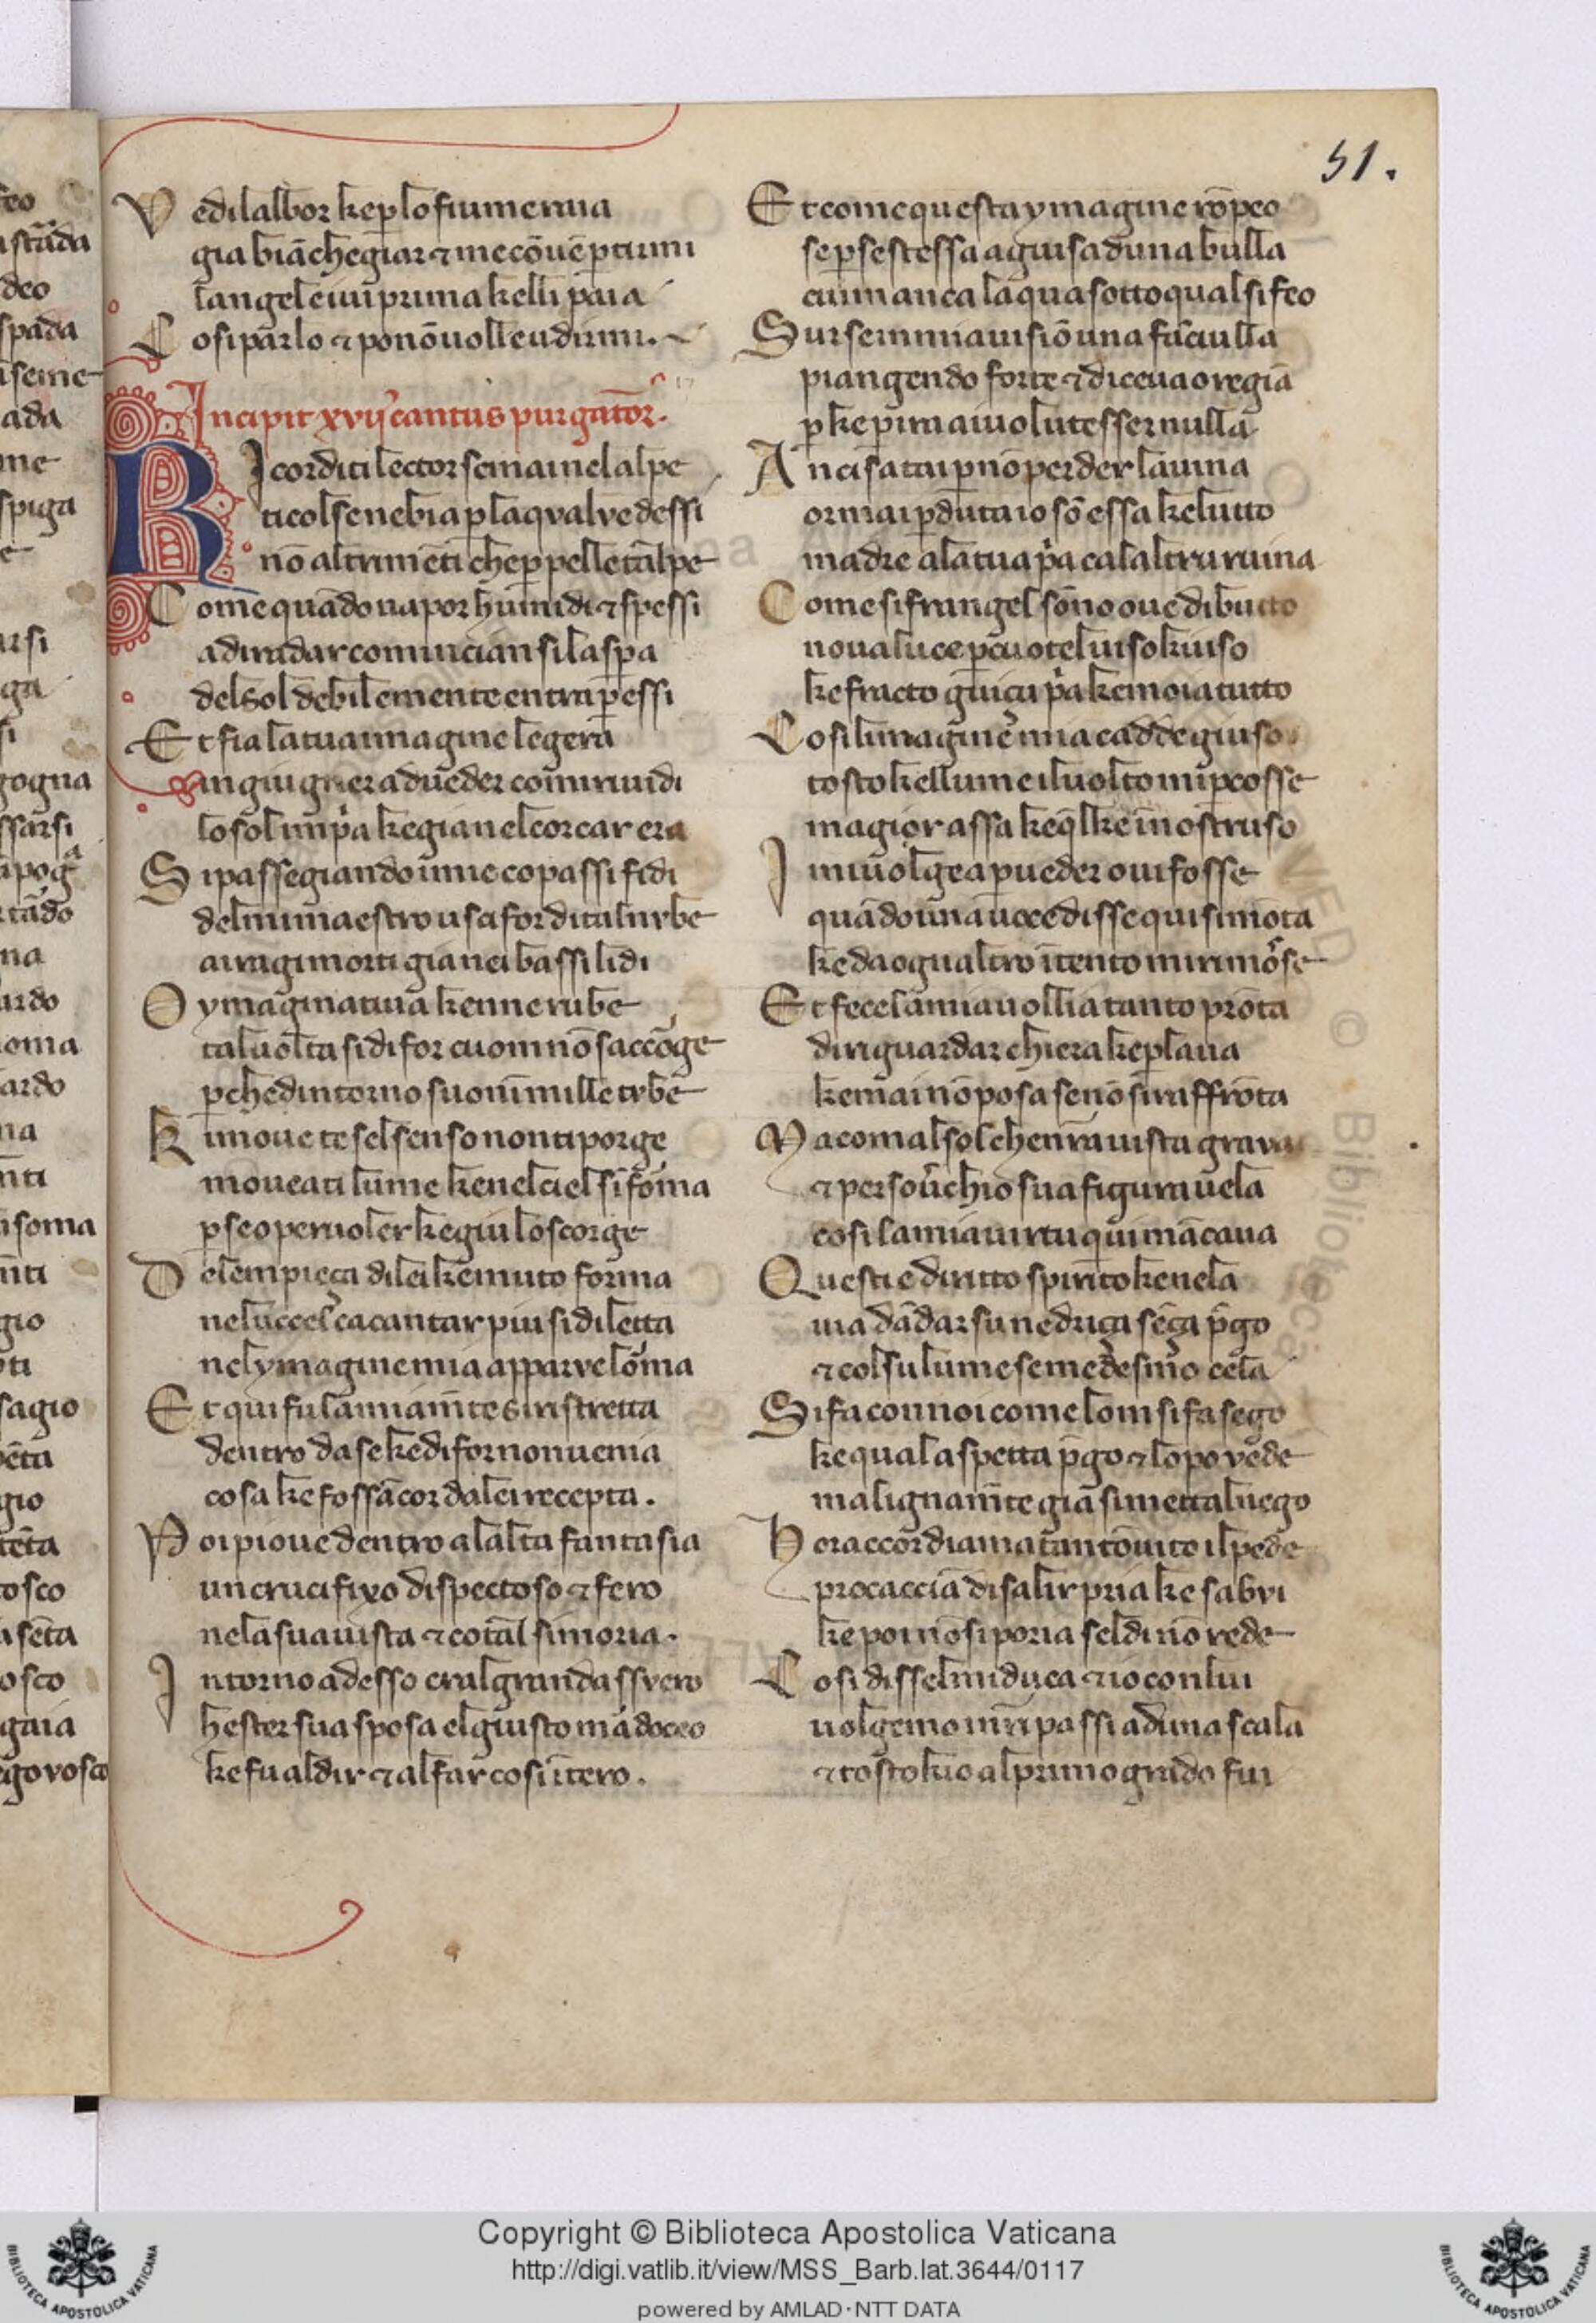 51.
Vedi lalbor ke per lo fiume rua
gia biãchegiar ⁊ me cõuẽ partirmi
langel e iui prima kelli paia
Cosi parlo ⁊ po nõ uolle udirmi.
Incipit xvij cantus purgator.
Ricorditi lector se mai nel alpe
ti colse nebia p la qual vedessi
nõ altrimẽti che per pelle talpe
Come quãdo uapor humidi ⁊ spessi
a diradar comincian si la spa
del sol debilemente entra p essi
Et fia la tua imagine legera
in giugner a dueder com riuidi
lo sol im pa ke gia nel corcar era
Si passegiando imie co passi fidi
del mi maestro usa for di tal nube
ai ragi morti gia nei bassi lidi
O ymaginatiua ke nne rube
tal uolta si di for cuom nõ saccorge
pche dintorno suonin mille tube
Ki moue te sel senso non ti porge
moueati lume ke nel ciel si forma
p se o per uoler ke giu lo scorge
De lempieça di lei ke muto forma
nel uccel ca cantar piu si diletta
nel ymagine mia apparve lorma
Et qui fu la mia mte si ristretta
dentro da se ke di for non uenia
cosa ke fossã cor da lei recepta.
Poi pioue dentro a lalta fantasia
un crucifixo dispectoso ⁊ fero
ne la sua uista ⁊ cotal si moria.
Intorno ad esso eral grande assuero
hester sua sposa el giusto mãdoceo
ke fu al dir ⁊ al far cosi ĩtero.
Et come questa ymagine rõpeo
se p se stessa a guisa duna bulla
cui manca laqua sotto qual si feo
Surse in mia uisiõ una fãciulla
piangendo forte ⁊ diceua o regia
p ke p ira ai uolut esser nulla
Ancisa tai p nõ perder lauina
or mai pduta io sõ essa ke lutto
madre a la tua pa ca laltru ruina
Come si frangel sõno oue di butto
noua luce pcuotel uiso kiuso
ke fracto guiça pa ke moia tutto
Cosi limagine mia cadde giuso
tosto kel lume il uolto mi pcosse
magior assa ke qlke ĩ nostruso
I mi uolgea p ueder oui fosse
quãdo una uoce disse qui si mota
ke da ogualtro ĩtento mi rimose
Et fece la mia uollia tanto prõta
di riguardar chi era ke parlaua
ke mai nõ posa se nõ si raffrõta
Ma comal sol che nra uista graua
⁊ per souchio sua figura uela
cosi la mia uirtu qui mãcaua
Questi e diuitto spirito ke ne la
uia dãdar su ne driça sẽça pgo
⁊ col su lume se medesmo cela
Si fa con noi come lom si fa sego
ke qual aspetta pgo ⁊ lopo vede
malignamte gia si mettal nego
Hor accordiam a tantõ uito il pede
procacciã di salir pria ke sabvi
ke poi nõ si poria sel di nõ rede
Cosi disse il mi duca ⁊ io con lui
uolgemo nri passi ad una scala
⁊ tosto kio al primo grado fui
Copyright © Biblioteca Apostolica Vaticana
http://digi.vatlib.it/view/MSS_Barb.lat.3644/0117
powered by AMLAD·NTT DATA